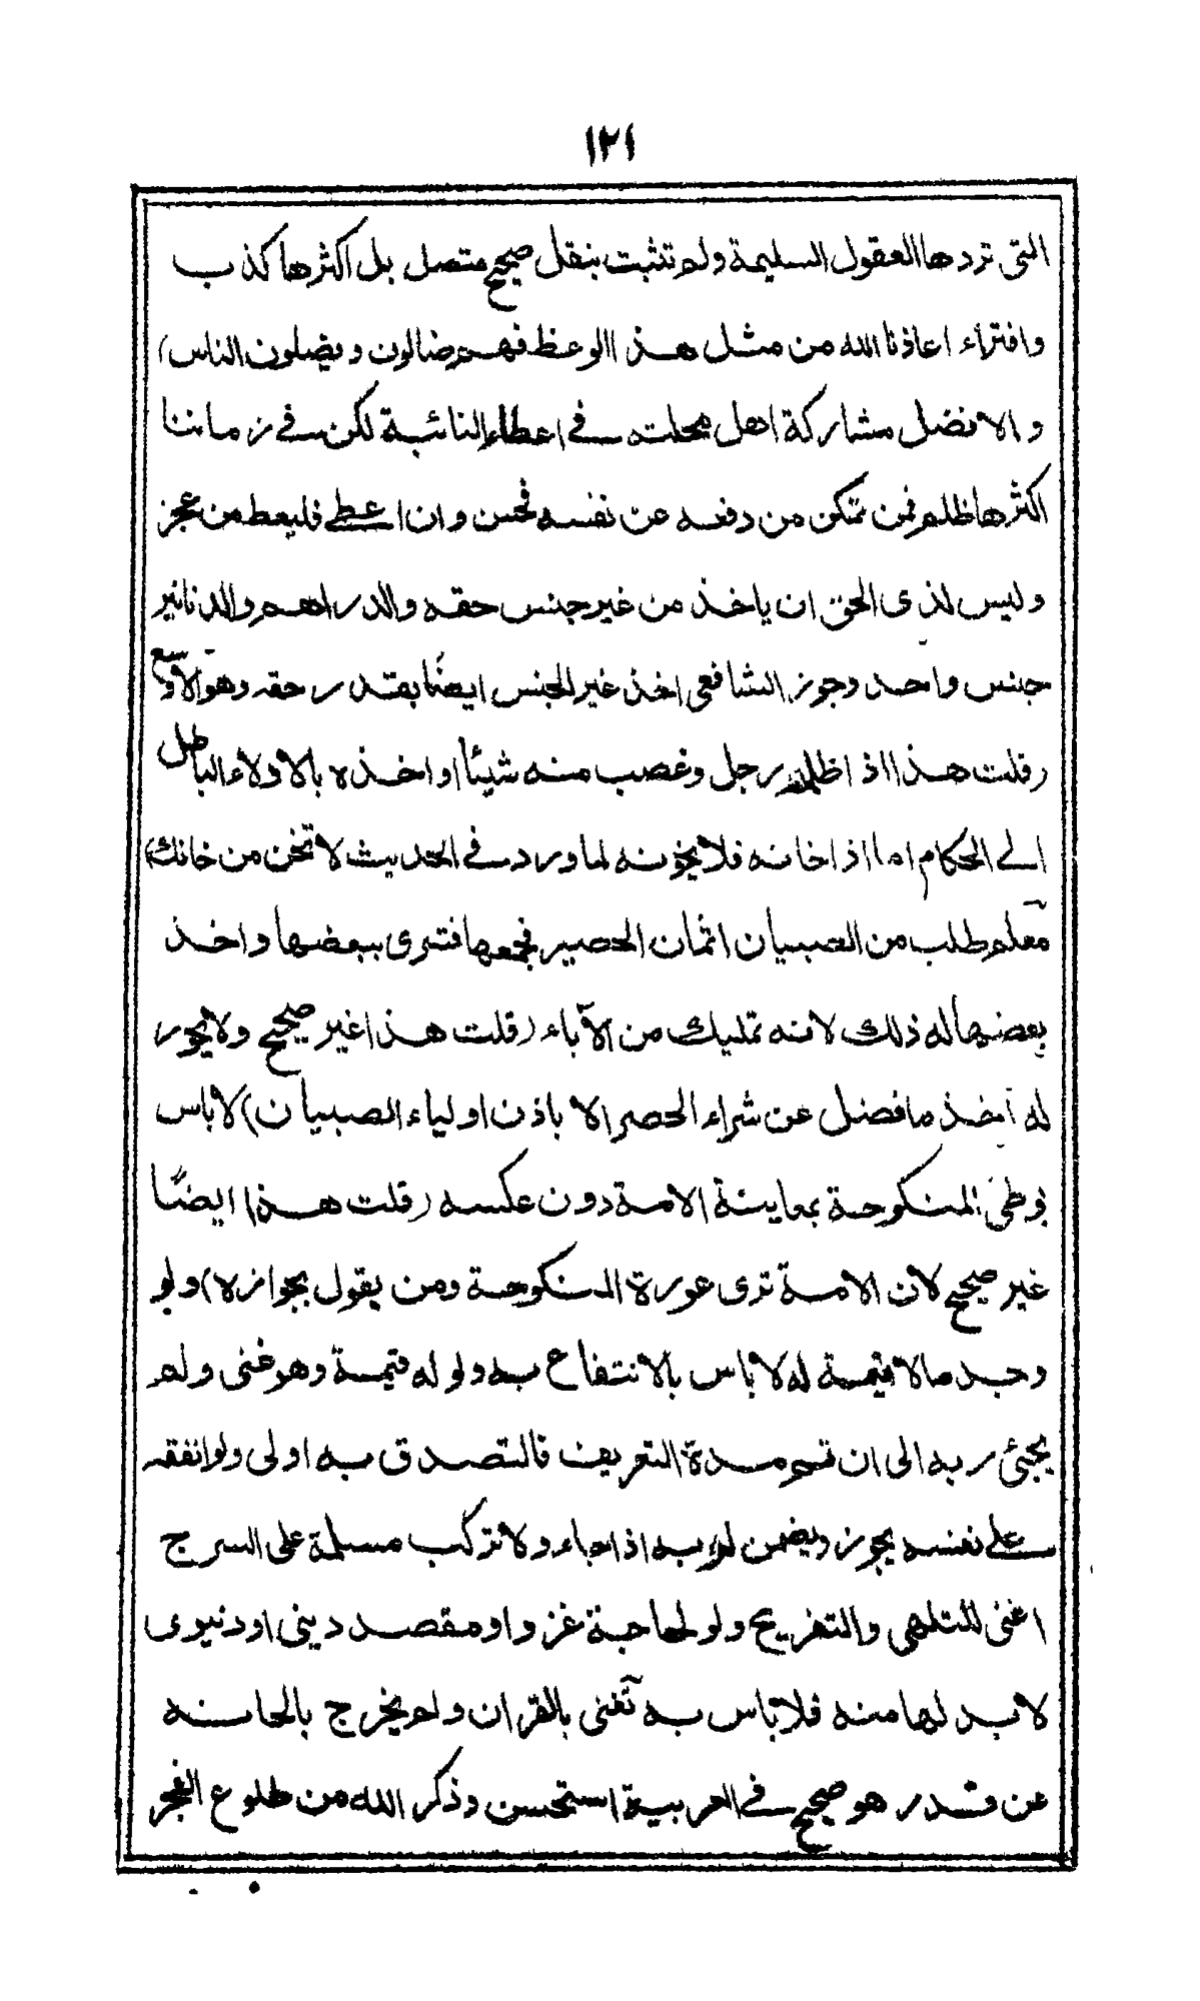 ١٢١
التى تردها العقول السليمة ولم تثبت بنقل صحيح متصل بل اكثرها كذب
وافتراء اعاذنا الله من مثل هذا الوعظ فهم ضالون ويضلون الناس)
والافضل مشاركة اهل محلته فى اعطاء النائبة لكن فى زماننا
اكثرها ظلم فمن تمكن من دفعه عن نفسه فحسن وان اعطى فليعط من عجز
وليس لذى الحق ان ياخذ من غير جنس حقه والدراهم والدنانير
جنس واحد وجوز الشافعى اخذ غير الجنس ايضًا بقدر حقه وهو الاوسع
(قلت هذا اذا ظلمه رجل وغصب منه شيئا او اخذه بالاولاء الباطل
الى الحكام اما اذا خانه فلا يخونه لما ورد فى الحديث لا تخن من خانك)
معلم طلب من الصبيان اثمان الحصير فجمعها فشرى ببعضها واخذ
بعضها له ذلك لانه تمليك من الآباء (قلت هذا غير صحيح ولا يجوز
له اخذ ما فضل عن شراء الحصر الا باذن اولياء الصبيان) لا باس
بوطئ المنكوحة بمعاينة الامة دون عكسه (قلت هذا ايضًا
غير صحيح لان الامة ترى عورة المنكوحة ومن يقول بجوازه) ولو
وجد مالا قيمة له لا باس بالانتفاع به ولو له قيمة وهو غنى ولم
يجئ ربه الى ان تتم مدة التعريف فالتصدق به اولى ولو انفقه
على نفسه يجوز ويضمن لربه اذا جاء ولا تركب مسلمة على السرج
اغنى للتلهى والتفريح ولو لحاجة غزو او مقصد دينى او دنيوى
لا بد لها منه فلا باس به تغنى بالقران ولم يخرج بالحانه
عن قدر هو صحيح فى العربية استحسن وذكر الله من طلوع الفجر